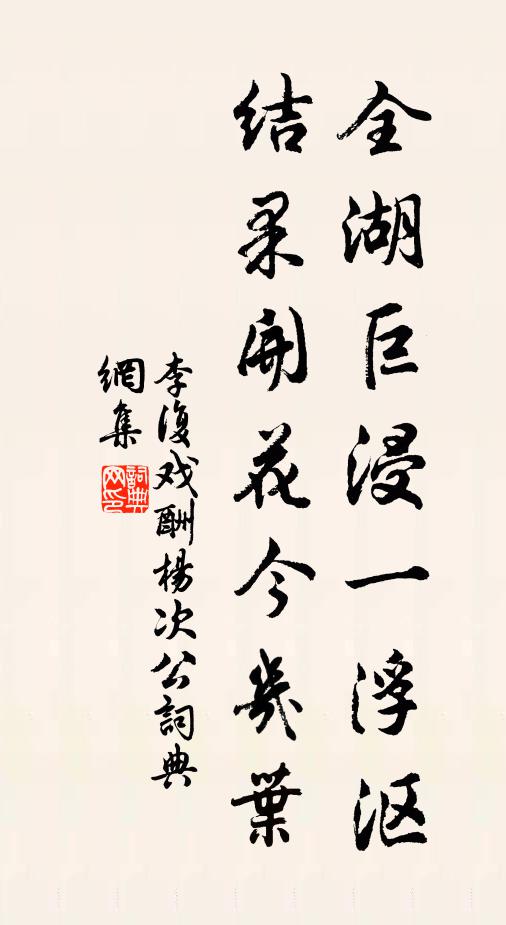 全湖巨浸一浮沤
结果開花今幾葉
李復戏酬楊次公詞典
網集
詞典网印